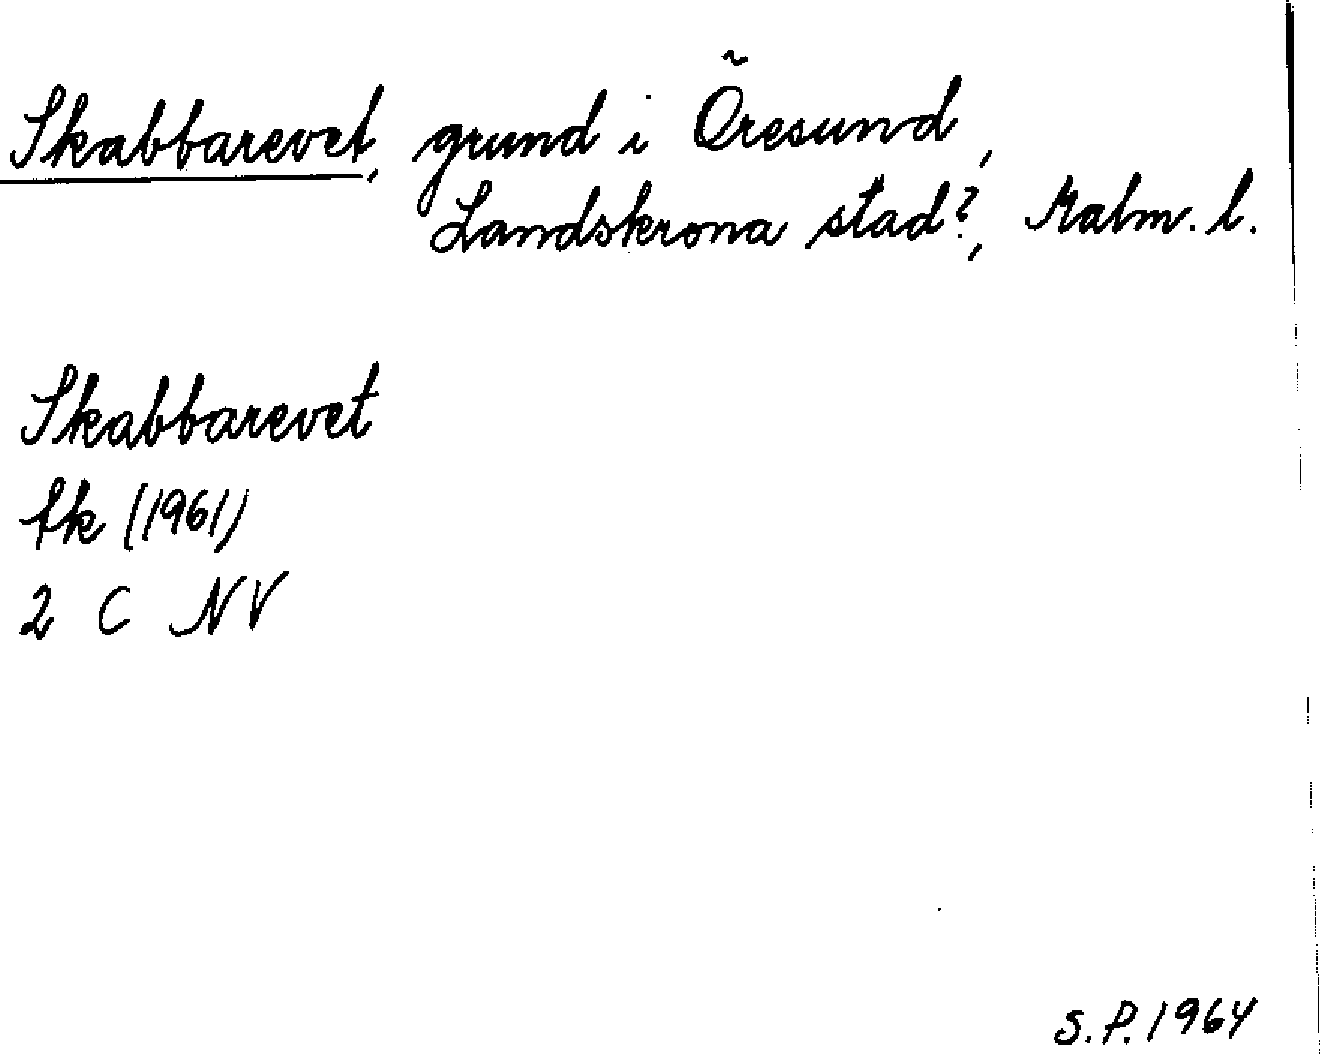 Skabbarevet, grund i Öresund,
Landskrona stad?, Malm. l.
Skabbarevet
fk (1961)
2 C NV
S.P. 1964